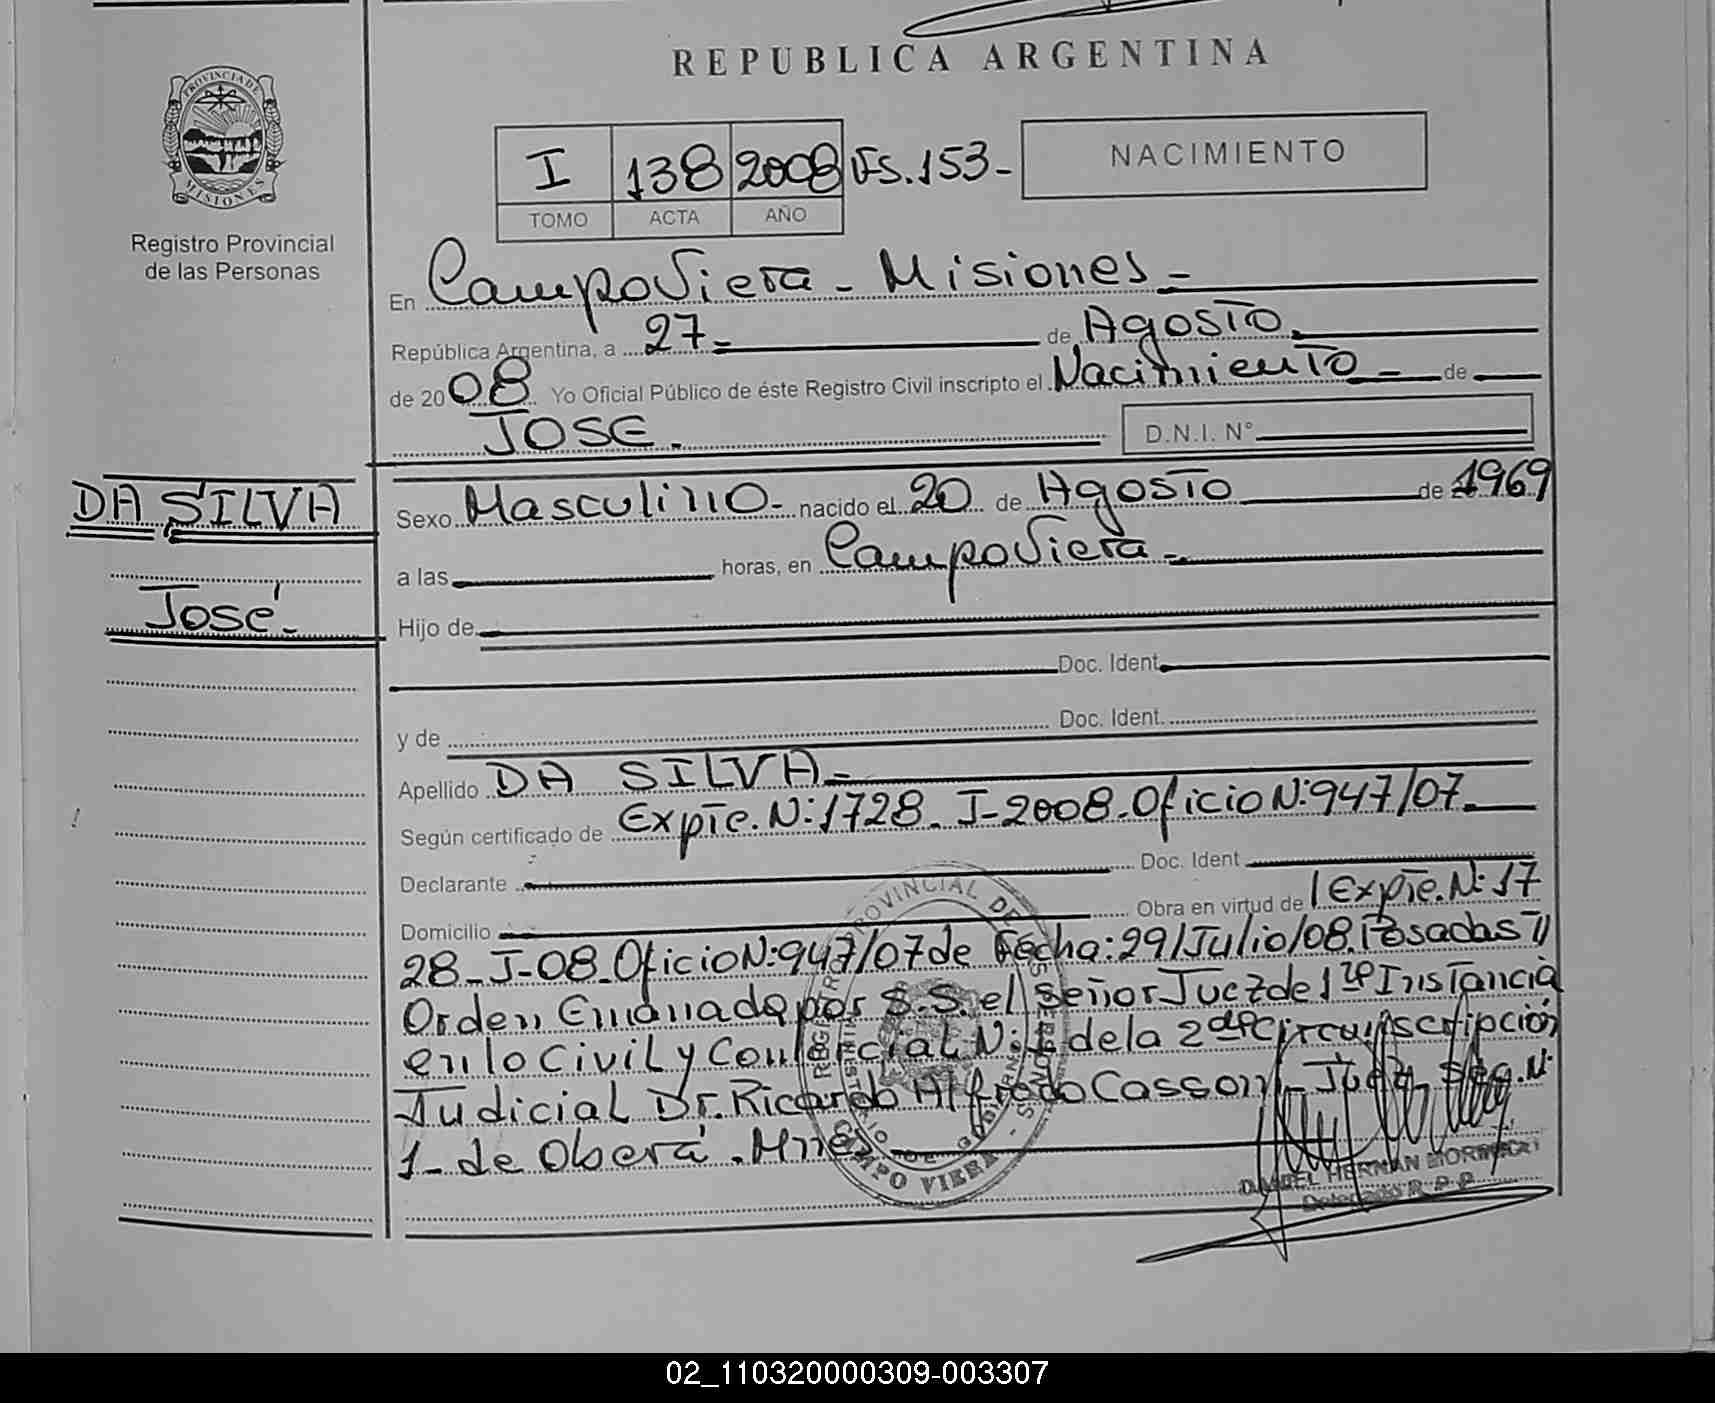 REPUBLICA ARGENTINA
PROVINCIA DE MISIONES
Registro Provincial
de las Personas
I 138 2008 FS.153-
TOMO ACTA AÑO
NACIMIENTO
En Campo Viera - Misiones -
República Argentina, a 27 - de Agosto
de 20 08 Yo Oficial Público de éste Registro Civil inscripto el Nacimiento - de
JOSE.
D.N.I. N°
DA SILVA
José -
Sexo Masculino - nacido el 20 de Agosto de 1969
a las horas, en Campo Viera -
Hijo de
Doc. Ident.
y de Doc. Ident.
Apellido DA SILVA -
Según certificado de Expte. N: 1728 - J-2008 - Oficio N: 947/07 -
Declarante Doc. Ident
Domicilio Obra en virtud de Expte. N: 17
28 - J-08 - Oficio N: 947/07 de Fecha: 29/Julio/08. Posadas
Orden Emanada por S.S. el señor Juez de 1ra Instancia
en lo Civil y Comercial N: 1 de la 2da Circunscripción
Judicial Dr. Ricardo Alfredo Casson - Juzg. Seg. N:
1 - de Oberá. Mnes
CAMPO VIERA
HERNAN
Delegado R. P. P.
02_110320000309-003307